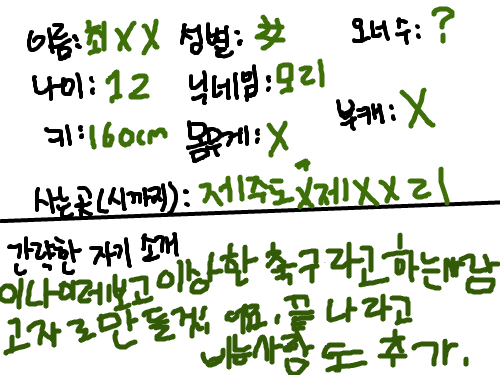 이름:최XX 성별: 오너수:?
나이:12 닉네임:모리
키:160cm 몸무게:X 부캐:X
사는곳(시까지):제주도X제XX리
간략한 자기 소개
이나이레보고 이상한 축구라고 하는 남
고자로 만들것 끝 나라고
비는사람도 추가.